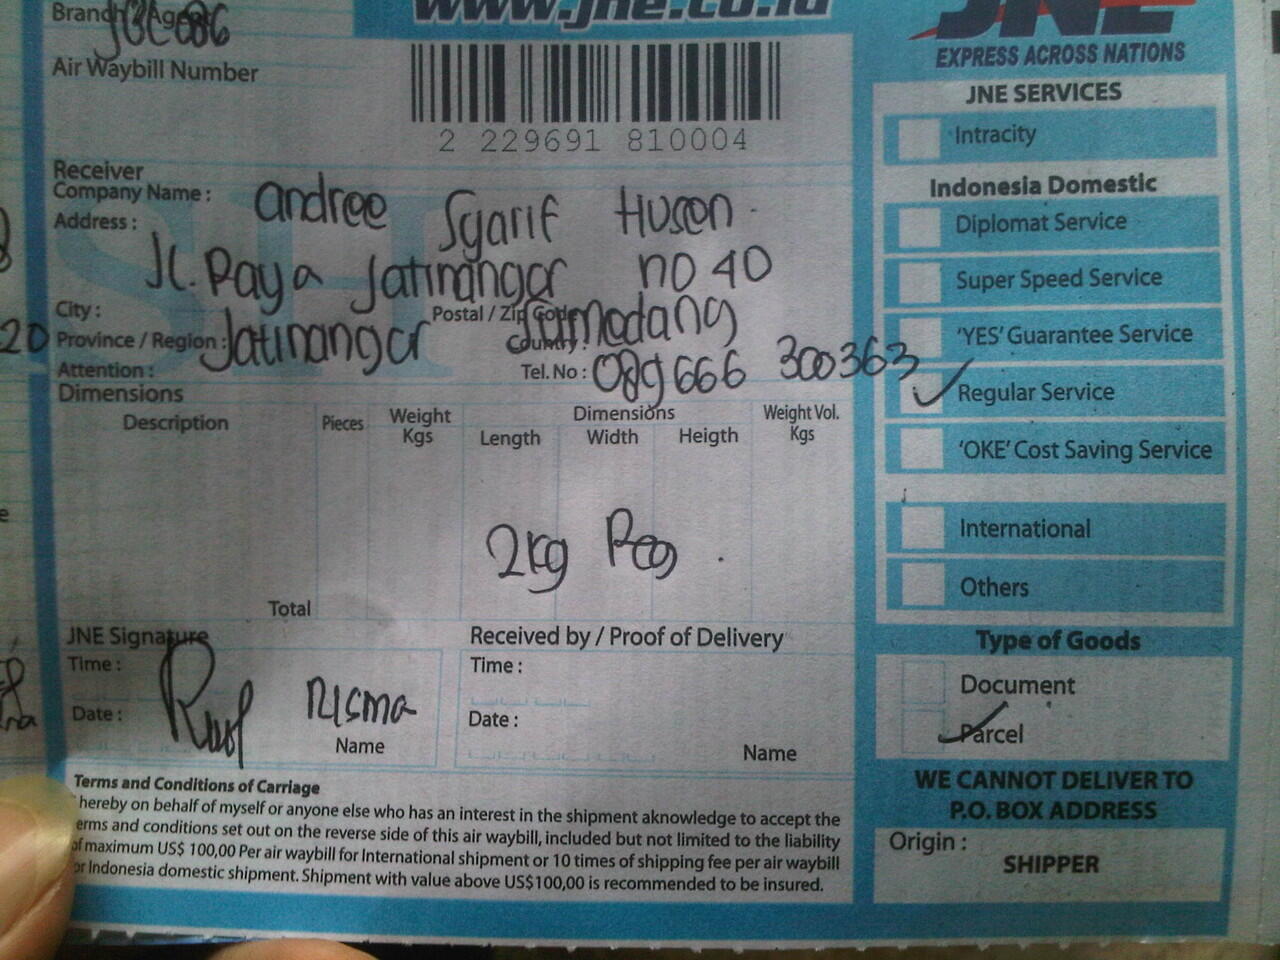 www.jne.co.id
JNE
EXPRESS ACROSS NATIONS
Branch / Agent
Air Waybill Number
2 229691 810004
Receiver
Company Name : andree Syarif Huson
Address :
Jl. Raya Jatinangor no 40
City : Postal / Zip Code Sumedang
Province / Region : Jatinangor Country :
Attention : Tel. No : 089666 300363
Dimensions
Description Pieces Weight Kgs Dimensions Weight Vol. Kgs
Length Width Heigth
2kg Reg .
Total
JNE Signature
Time :
Date :
Risma
Name
Received by / Proof of Delivery
Time :
Date :
Name
Terms and Conditions of Carriage
I hereby on behalf of myself or anyone else who has an interest in the shipment aknowledge to accept the
terms and conditions set out on the reverse side of this air waybill, included but not limited to the liability
of maximum US$ 100,00 Per air waybill for International shipment or 10 times of shipping fee per air waybill
for Indonesia domestic shipment. Shipment with value above US$100,00 is recommended to be insured.
JNE SERVICES
Intracity
Indonesia Domestic
Diplomat Service
Super Speed Service
'YES' Guarantee Service
Regular Service
'OKE' Cost Saving Service
International
Others
Type of Goods
Document
Parcel
WE CANNOT DELIVER TO
P.O. BOX ADDRESS
Origin :
SHIPPER